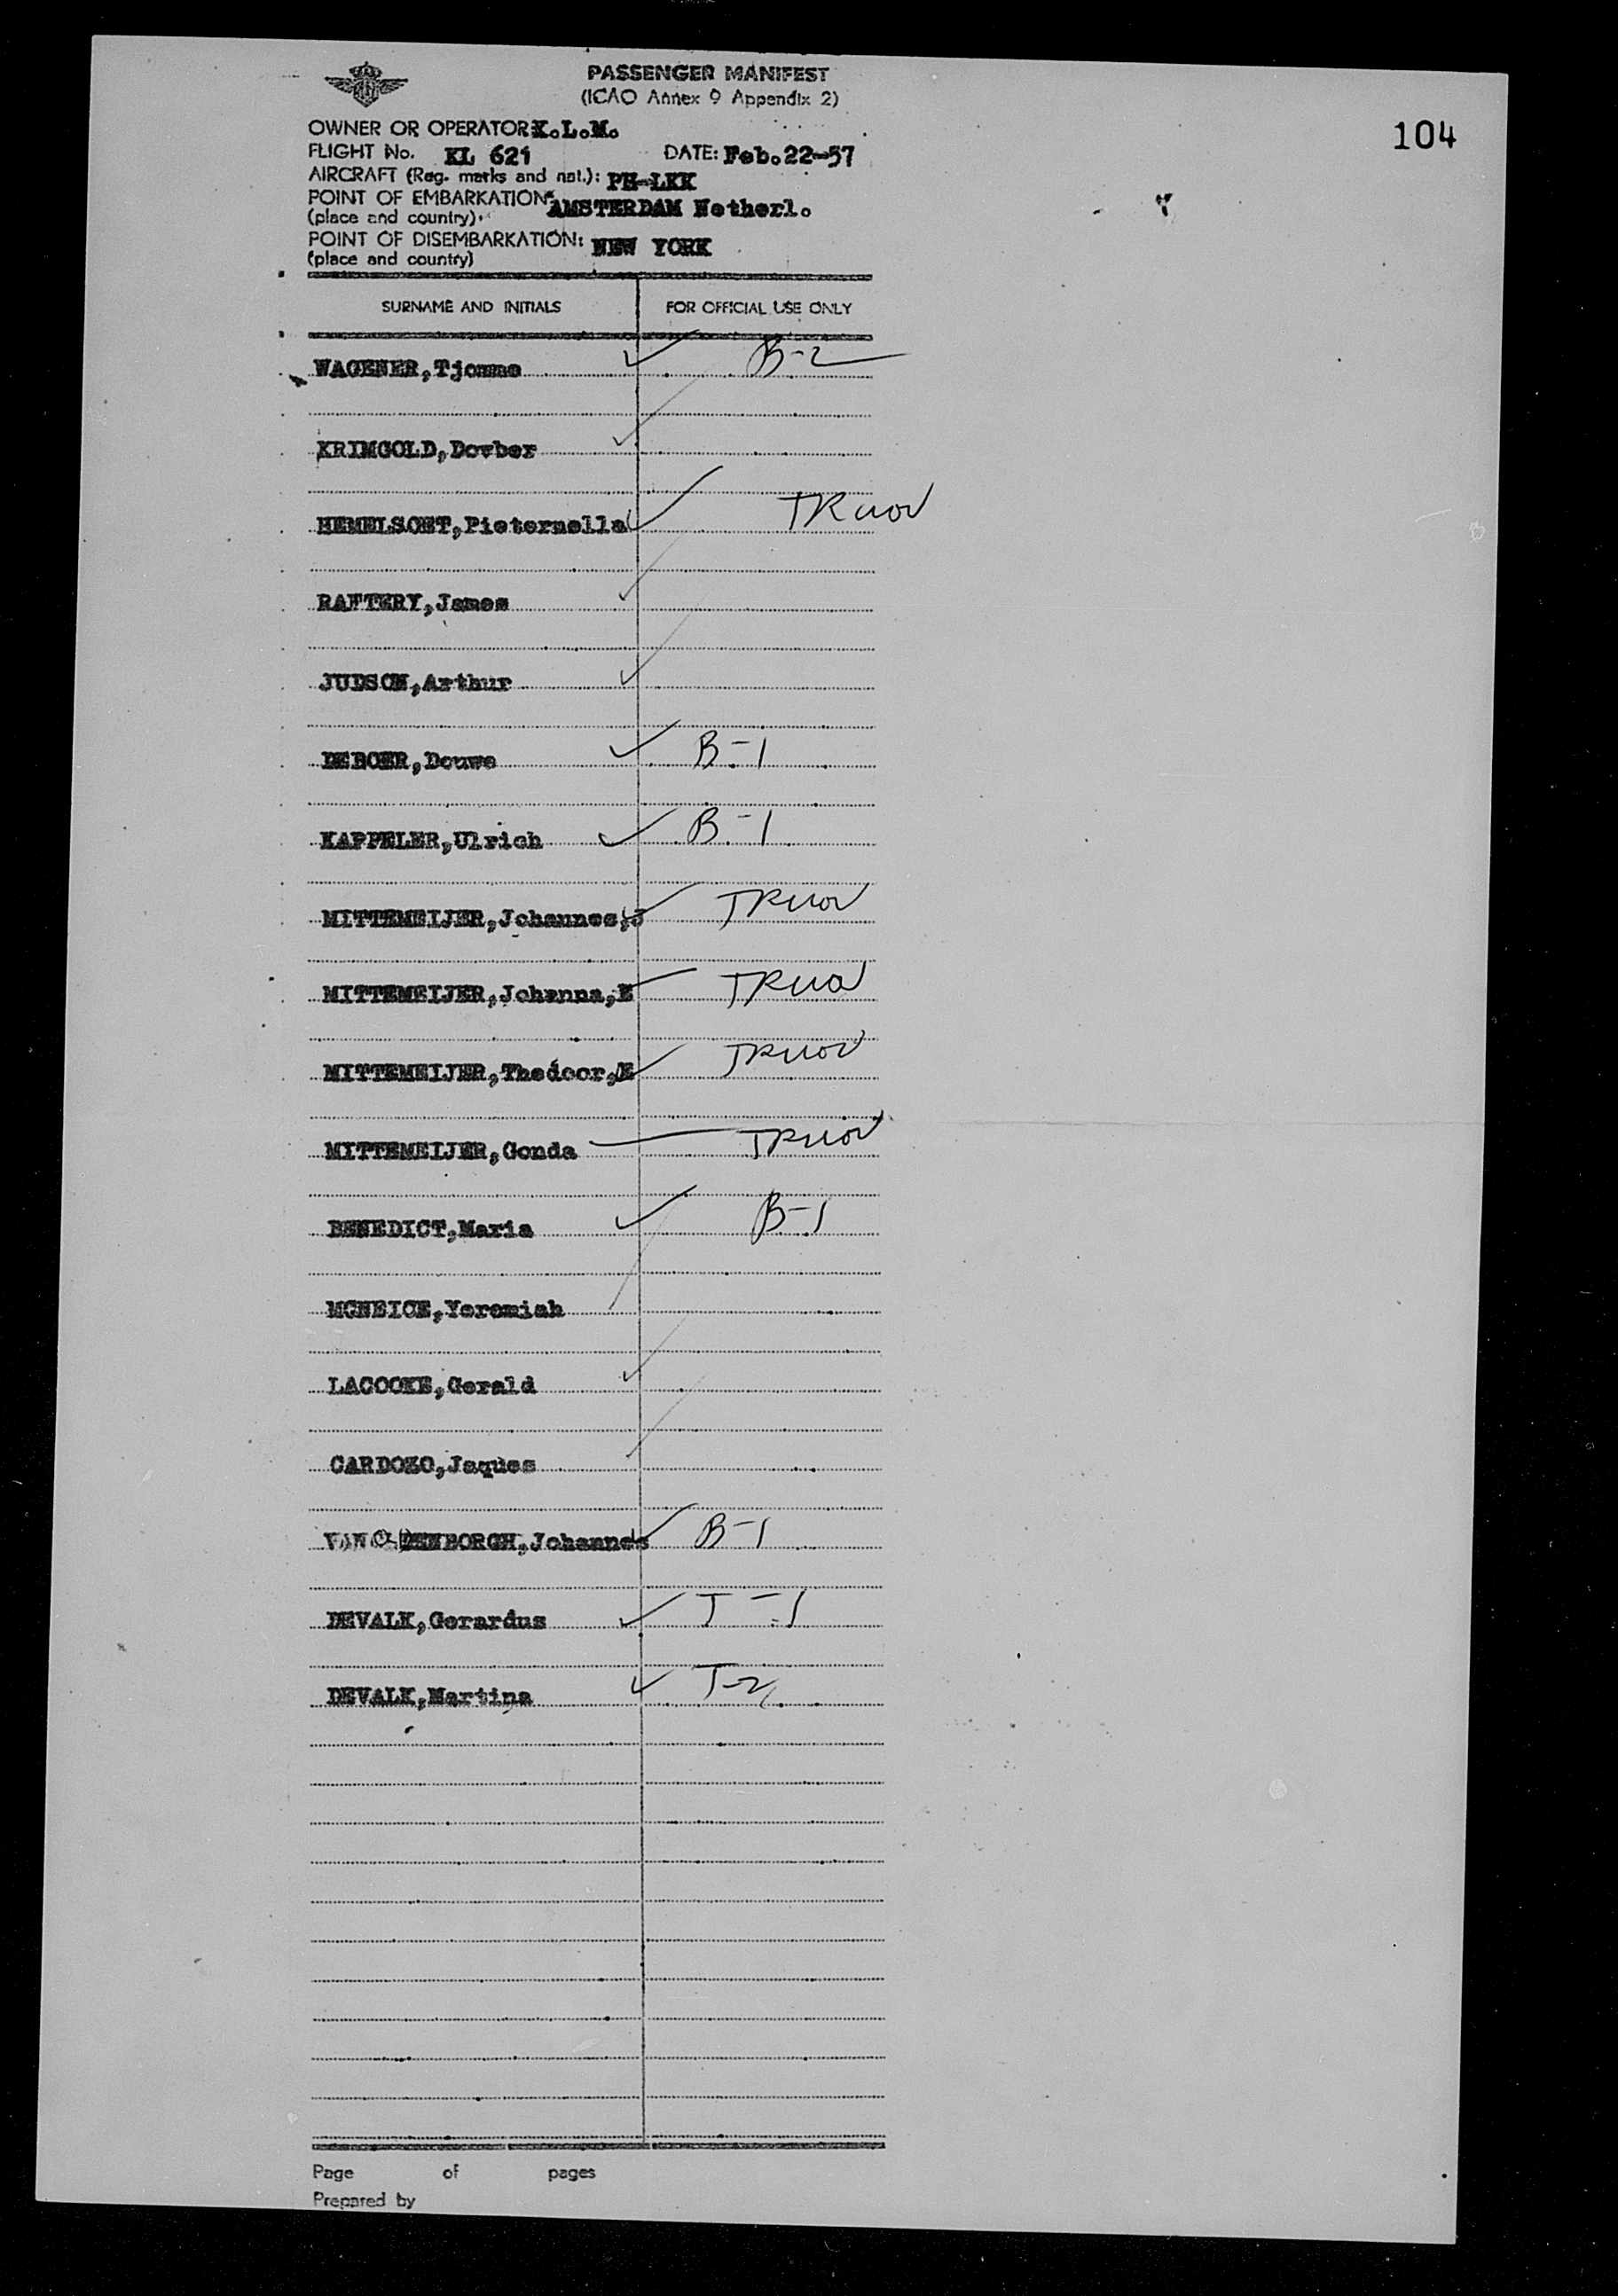 PASSENGER MANIFEST
(ICAO Annex 9 Appendix 2)
104
OWNER OR OPERATOR: K.L.M.
FLIGHT No. KL 621 DATE: Feb.22-57
AIRCRAFT (Reg. marks and nat.): PH-LKK
POINT OF EMBARKATION: AMSTERDAM Netherl.
(place and country)
POINT OF DISEMBARKATION: NEW YORK
(place and country)
SURNAME AND INITIALS FOR OFFICIAL USE ONLY
WAGENER,Tjomme B-2
KRIMGOLD,Dovber
HEMELSOET,Pieternella
RAFTERY,James
JUDSON,Arthur
DEBOER,Douwe B-1
KAPPELER,Ulrich B-1
MITTEMEIJER,Johannes,J
MITTEMEIJER,Johanna,E
MITTEMEIJER,Thedoor,E
MITTEMEIJER,Gonda
BENEDICT,Maria B-1
MCNEICE,Yeremiah
LACOOKE,Gerald
CARDOZO,Jaques
VAN DENBORGH,Johannes B-1
DEVALK,Gerardus T-1
DEVALK,Martina T-2
Page of pages
Prepared by